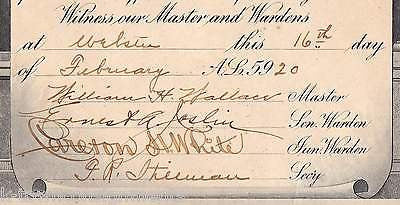 Witness, our Master and Wardens
at Webster this 16th day
of February A.L. 5920
William H. Wallace Master
Ernest A. Joslin Sen. Warden
Carleton A. White Jun. Warden
F. R. Sherman Secy